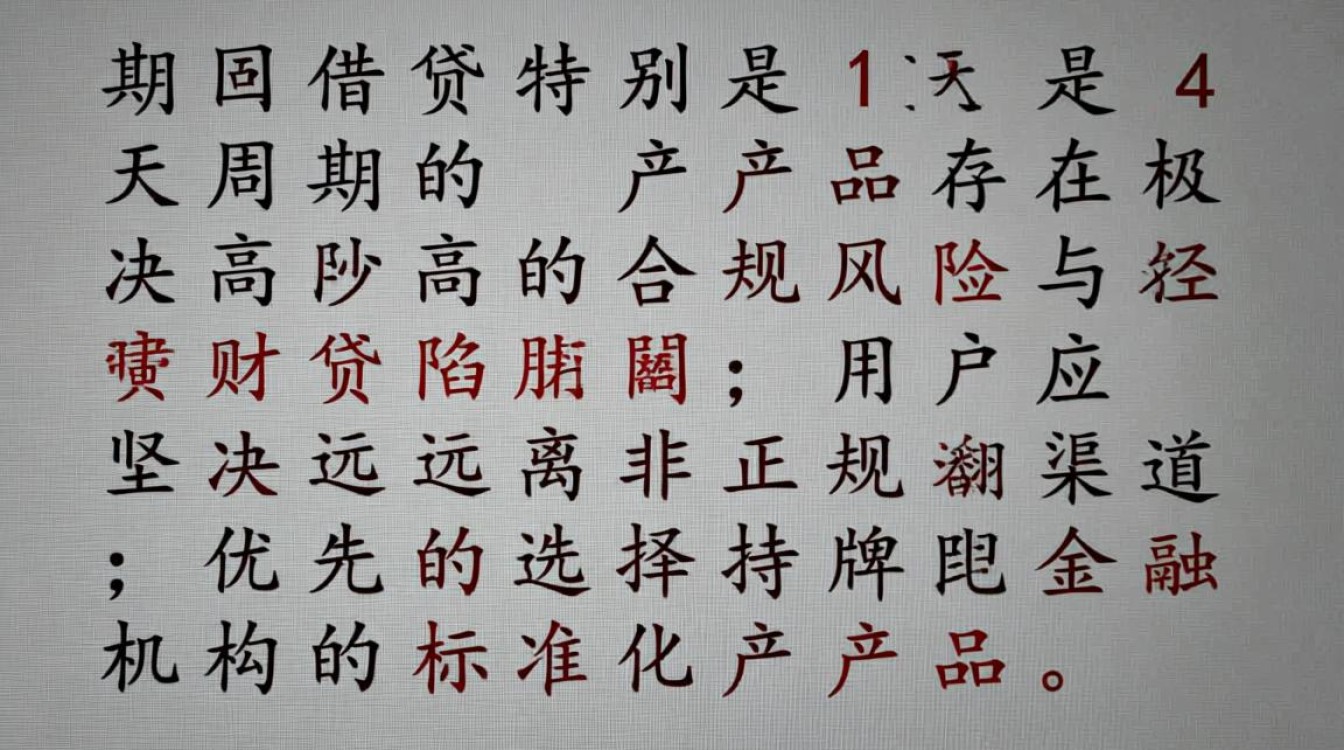 期固借贷特别是1天是4
天周期的 产产品存在极
决高高的合规风险与
财贷陷；用户应
坚决远远离非正规渠道
；优先的选择持牌金融
机构的标准化产产品。